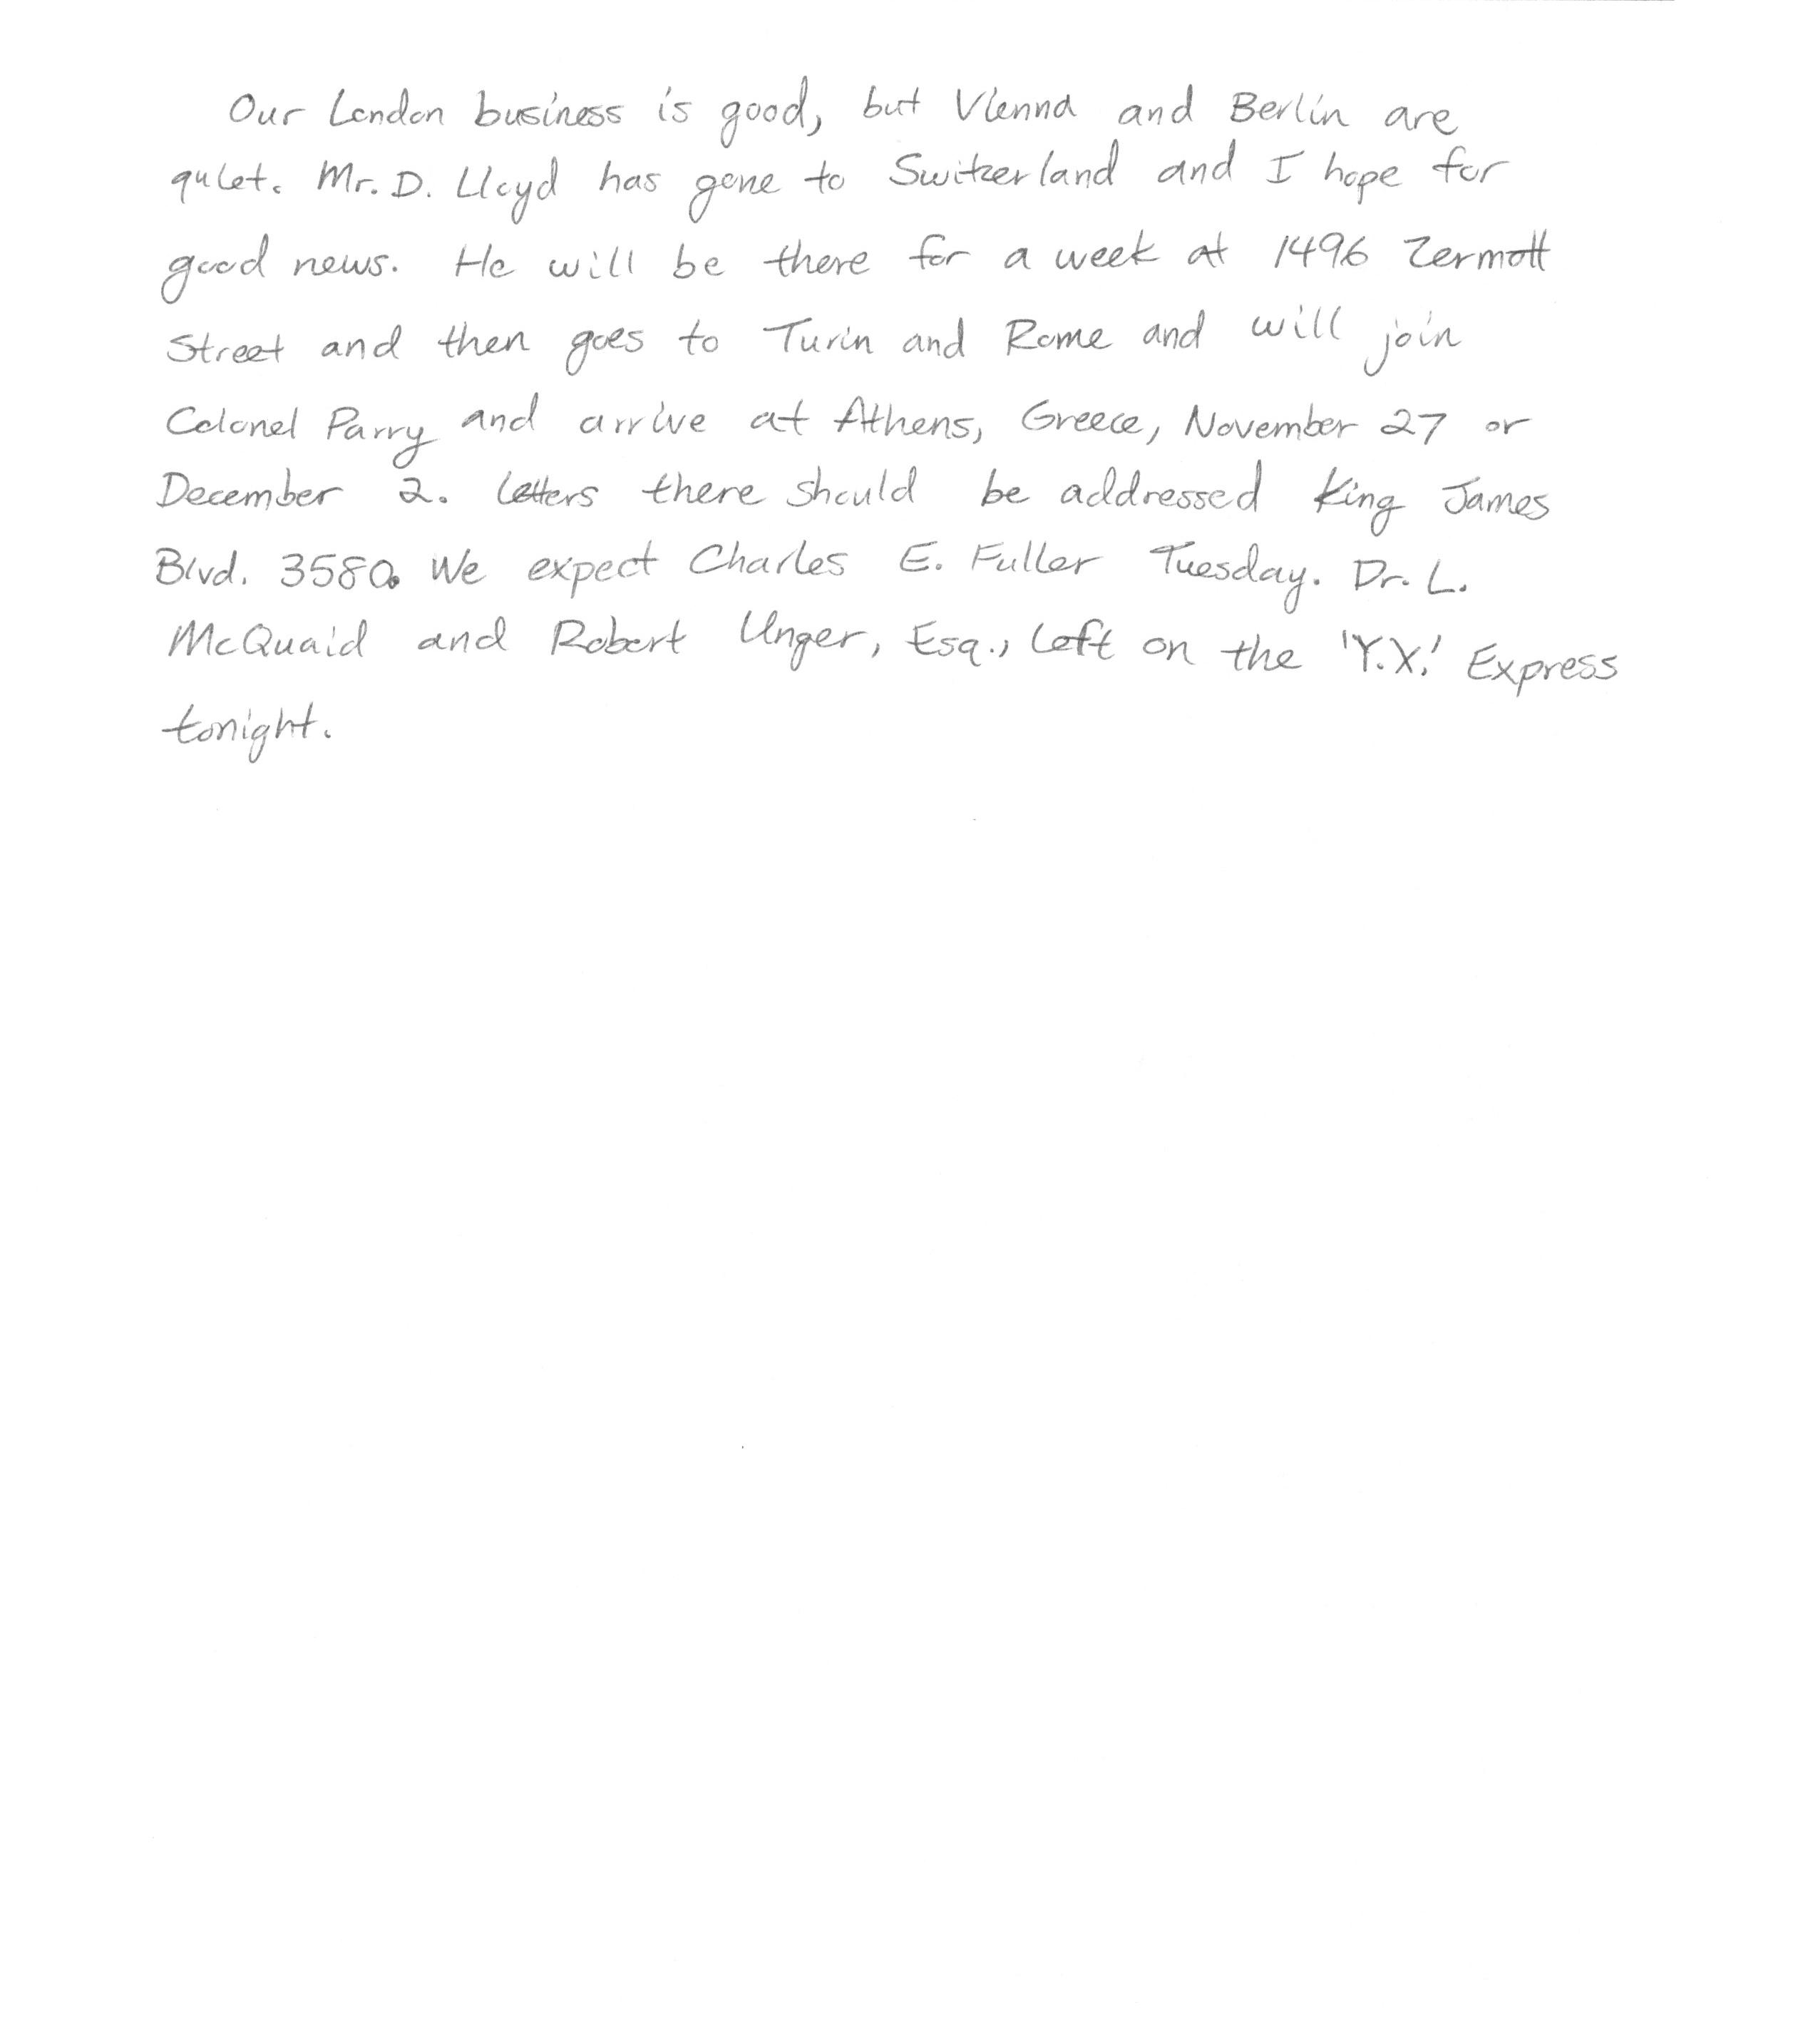 Our London business is good, but Vienna and Berlin are
quiet. Mr. D. Lloyd has gone to Switzerland and I hope for
good news. He will be there for a week at 1496 Zermott
Street and then goes to Turin and Rome and will join
Colonel Parry and arrive at Athens, Greece, November 27 or
December 2. Letters there should be addressed King James
Blvd. 3580. We expect Charles E. Fuller Tuesday. Dr. L.
McQuaid and Robert Unger, Esq., left on the 'Y.X.' Express
tonight.